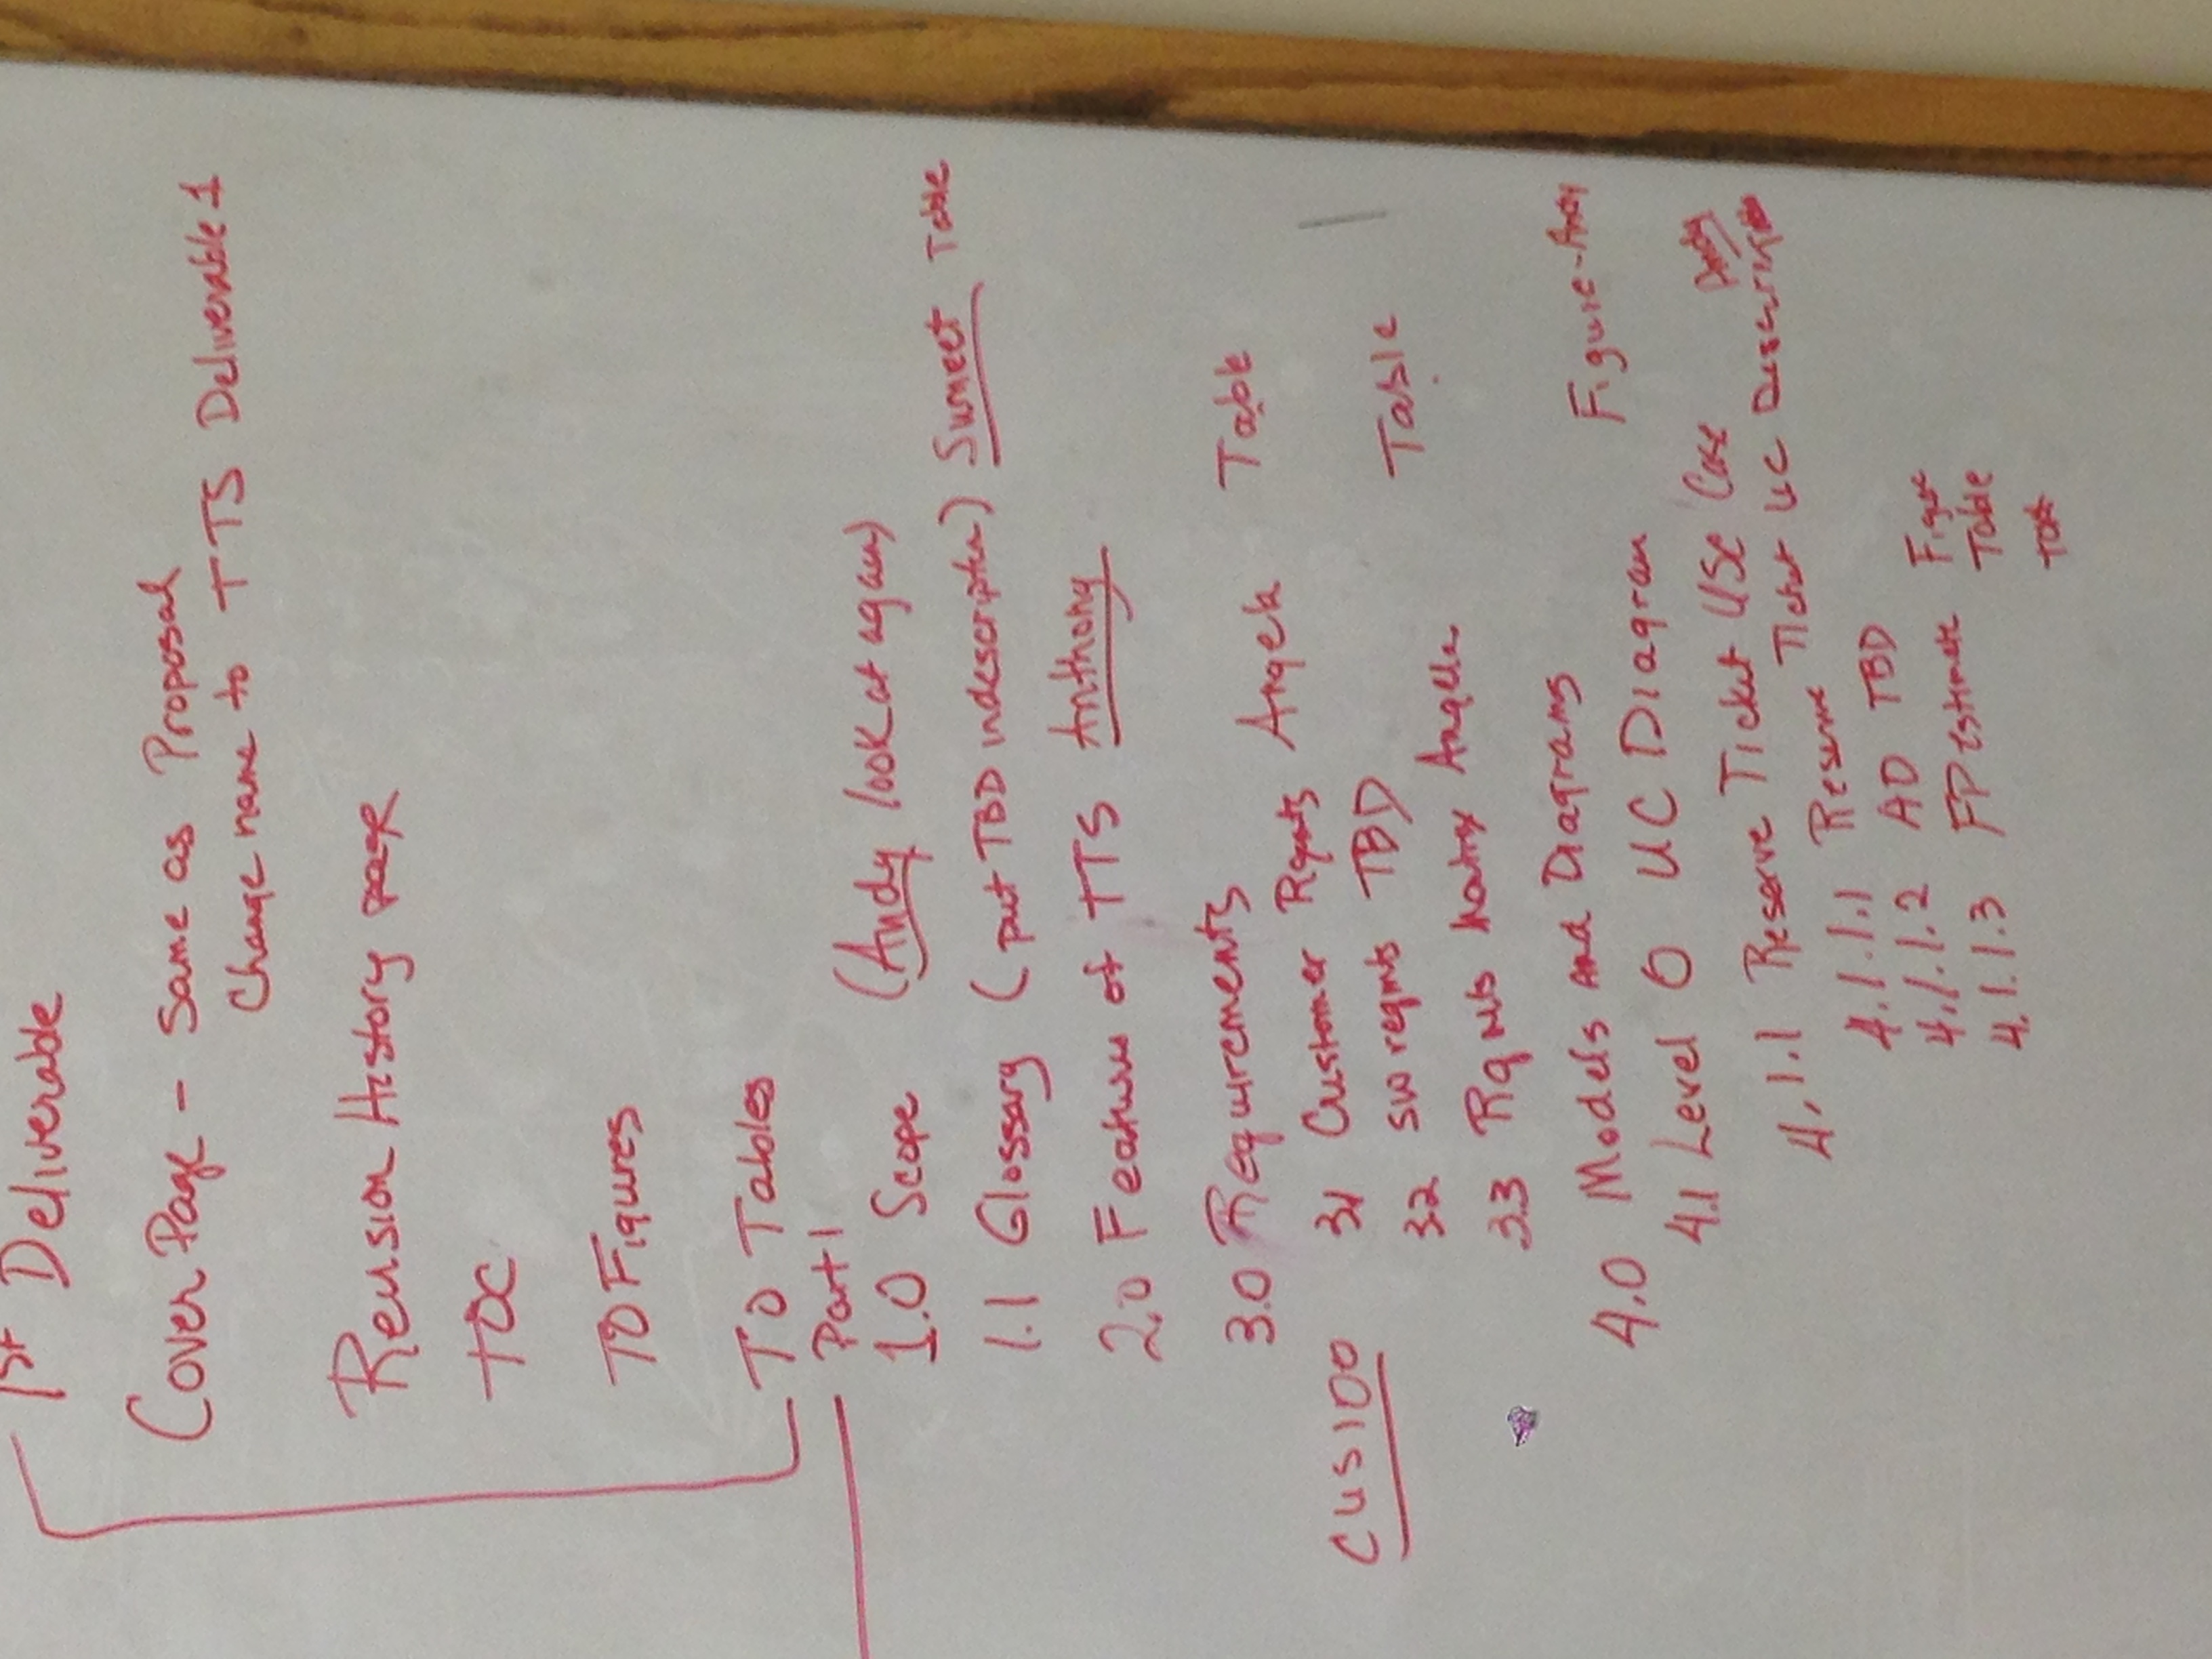 1st Deliverable
Cover Page - Same as Proposal
Change name to TTS Deliverable 1
Revision History page
TOC
TO Figures
TO Tables
Part 1
1.0 Scope (Andy look at again)
1.1 Glossary (put TBD in description) Sumeet Table
2.0 Features of TTS Anthony
3.0 Requirements
CUS100 3.1 Customer Rqmts Angela Table
3.2 SW reqmts TBD
3.3 Rqmts Matrix Angela Table
4.0 Models and Diagrams
4.1 Level 0 UC Diagram Figure-Andy
4.1.1 Reserve Ticket Use Case Andy
4.1.1.1 Reserve Ticket UC Description
4.1.1.2 AD TBD
4.1.1.3 FP estimate Figure
Table
text